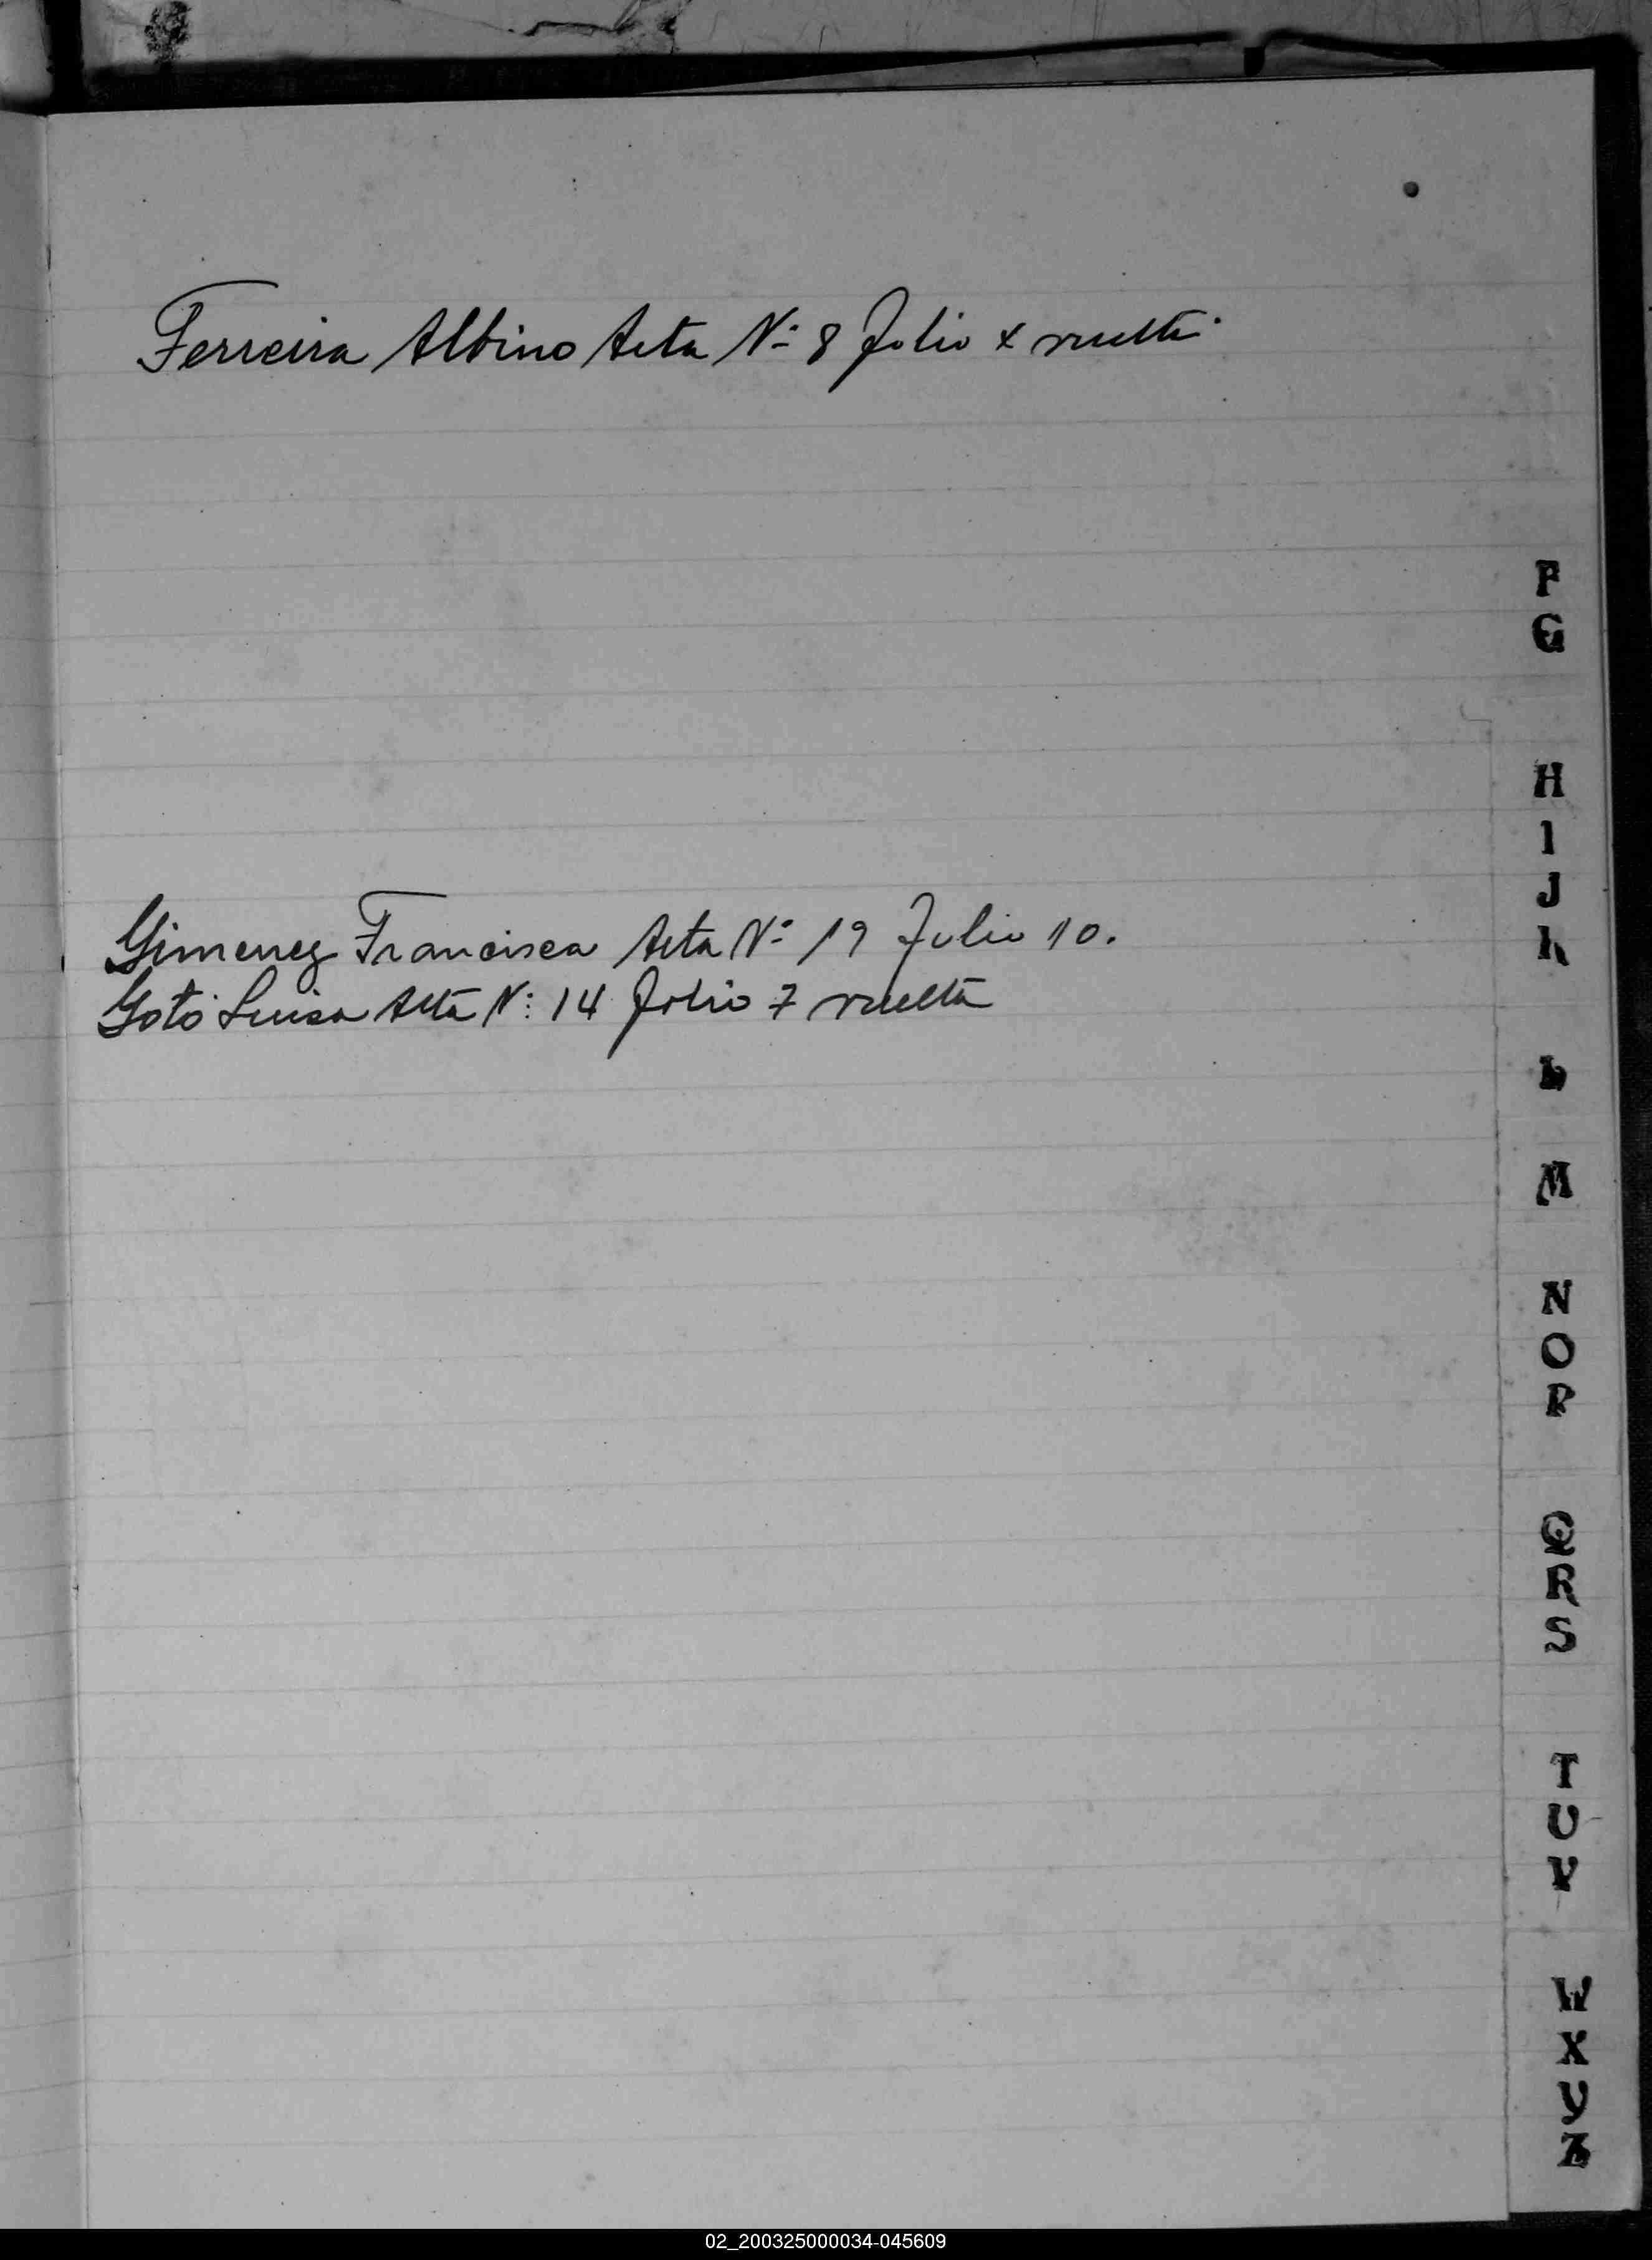 Ferreira Albino Acta Nº 8 folio 4 vuelta.
Gimenez Francisca Acta Nº 19 Folio 10.
Goto Luisa Acta Nº 14 folio 7 vuelta
F
G
H
I
J
K
L
M
N
O
P
Q
R
S
T
U
V
W
X
Y
Z
02_200325000034-045609